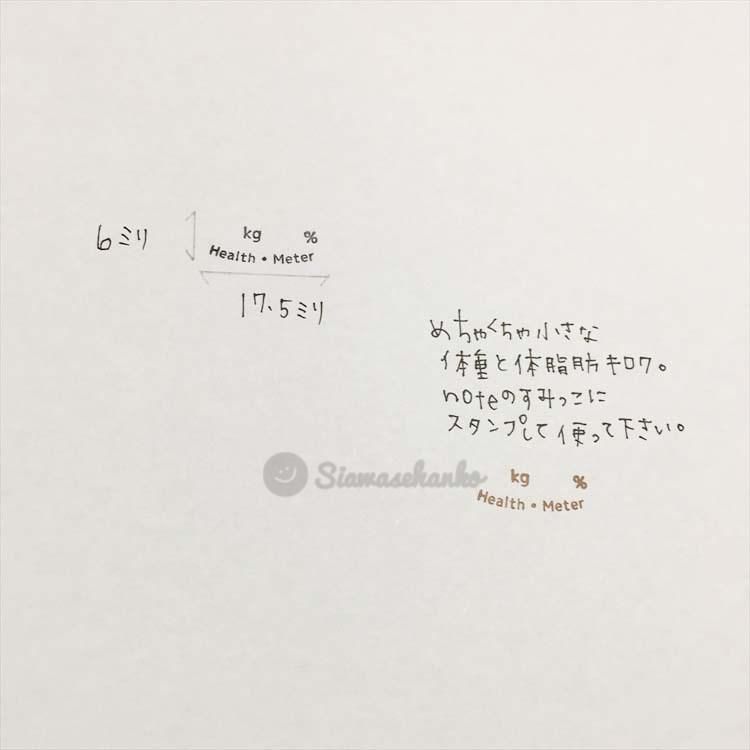 6ミリ
kg %
Health・Meter
17.5ミリ
めちゃくちゃ小さな
体重と体脂肪キロク。
noteのすみっこに
スタンプして使って下さい。
Siawasehanko
kg %
Health・Meter